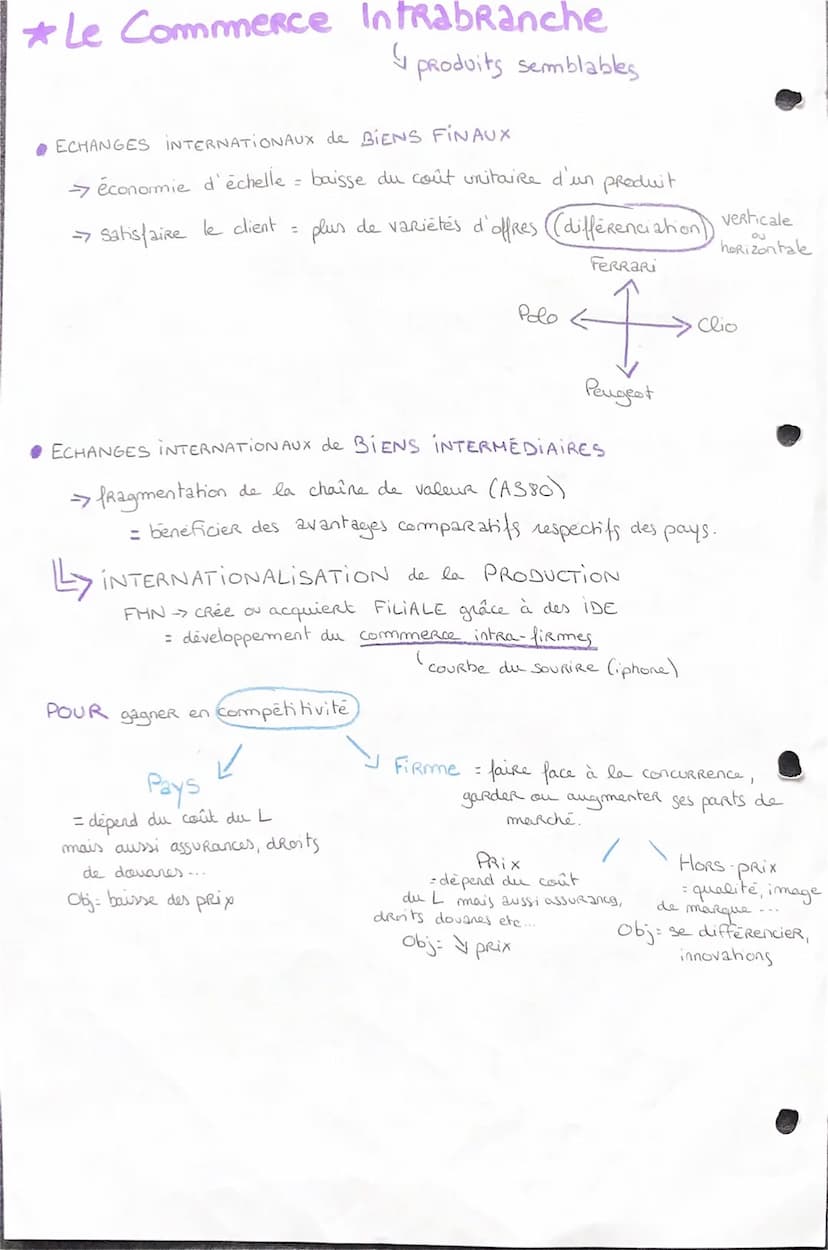 ★ Le Commerce Intrabranche
↳ produits semblables
• ECHANGES INTERNATIONAUX de BIENS FINAUX
=> économie d'échelle = baisse du coût unitaire d'un produit
=> satisfaire le client = plus de variétés d'offres (différenciation) verticale
ou
horizontale
Ferrari
Polo
Clio
Peugeot
• ECHANGES INTERNATIONAUX de BIENS INTERMÉDIAIRES
=> fragmentation de la chaîne de valeur (A380)
= bénéficier des avantages comparatifs respectifs des pays.
↳ INTERNATIONALISATION de la PRODUCTION
FMN → crée ou acquiert FILIALE grâce à des IDE
= développement du commerce intra-firmes
courbe du sourire (iphone)
POUR gagner en compétitivité
Pays
= dépend du coût du L
mais aussi assurances, droits
de douanes...
Obj = baisse des prix
Firme = faire face à la concurrence,
garder ou augmenter ses parts de
marché.
PRIX
= dépend du coût
du L mais aussi assurance,
droits douanes etc...
Obj = ↘ prix
HORS-PRIX
= qualité, image
de marque ...
Obj = se différencier,
innovations